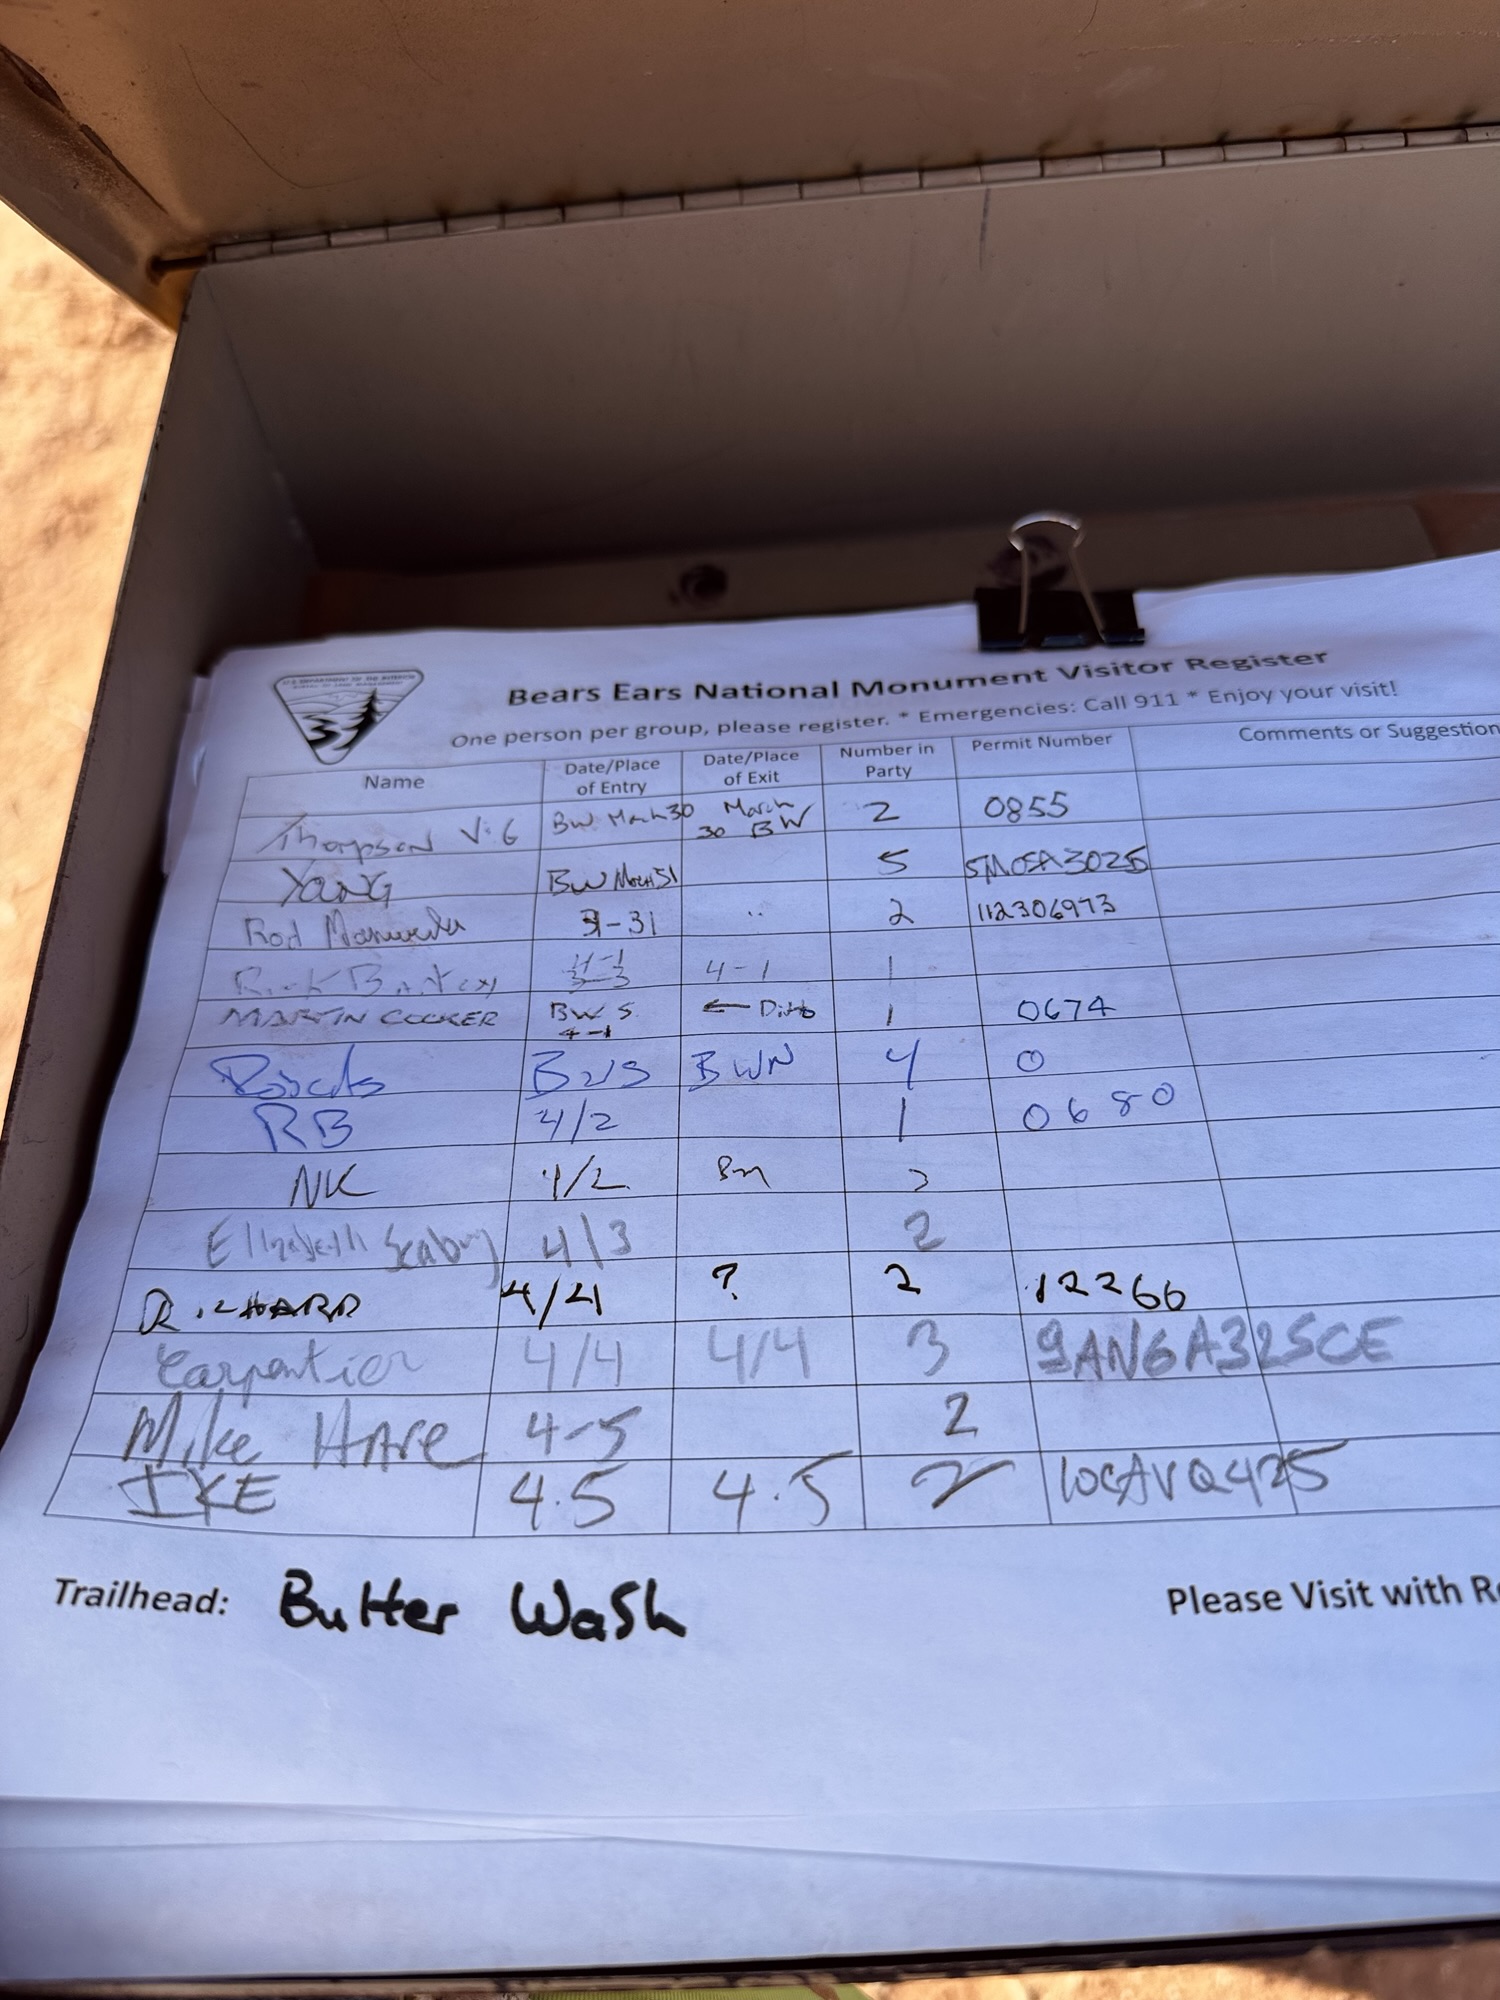 U.S. DEPARTMENT OF THE INTERIOR
BUREAU OF LAND MANAGEMENT
Bears Ears National Monument Visitor Register
One person per group, please register. * Emergencies: Call 911 * Enjoy your visit!
Name Date/Place of Entry Date/Place of Exit Number in Party Permit Number Comments or Suggestion
Thompson BW March 30 March 30 BW 2 0855
YOUNG BW March 31 5
Rod 3-31 " 2 112306973
Rick 4-1 1
MARTIN COCKER BW S 4-1 ← Ditto 1 0674
Roberts BWS BWN 4 0
RB 4/2 1 0680
NK 4/2
Elizabeth Seabury 4/3 2
RICHARD 4/4 ? 2 12266
Carpentier 4/4 4/4 3 9AN6A325CE
Mike HARE 4-5 2
IKE 4.5 4.5 2
Trailhead: Butler Wash
Please Visit with